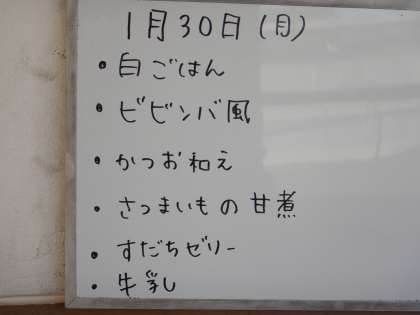 1月30日(月)
・白ごはん
・ビビンバ風
・かつお和え
・さつまいもの甘煮
・すだちゼリー
・牛乳